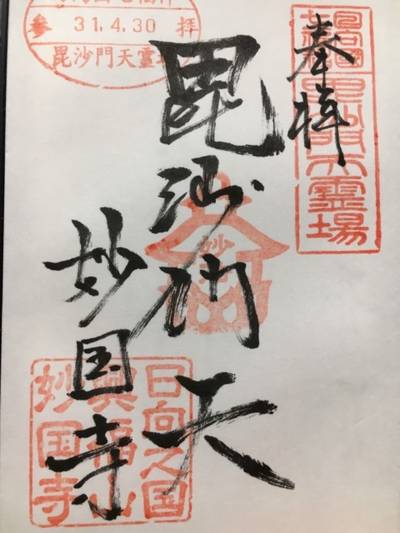 奉拝
毘沙門天霊場
毘沙門天
妙国寺
参 31.4.30 拝
毘沙門天霊場
日向之国
興福山
妙国寺